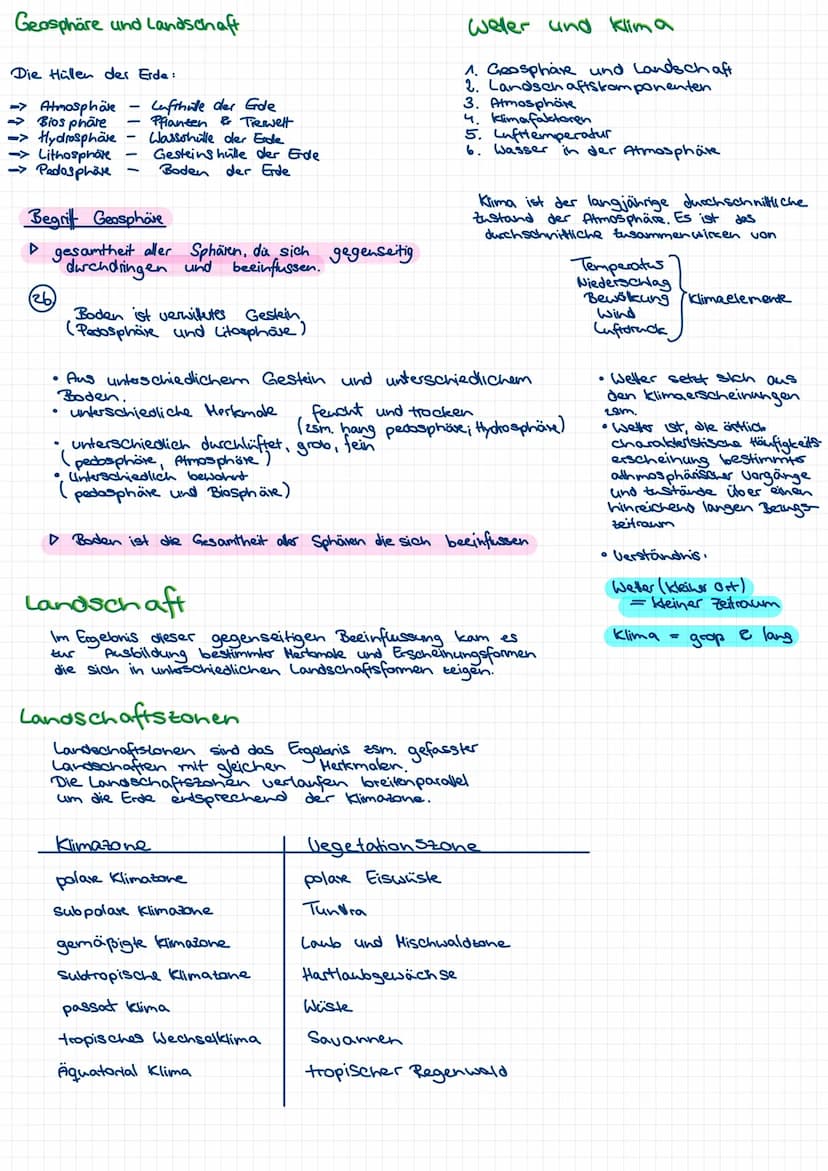 Geosphäre und Landschaft
Die Hüllen der Erde:
-> Atmosphäre - Lufthülle der Erde
-> Biosphäre - Pflanzen & Tierwelt
-> Hydrosphäre - Wasserhülle der Erde
-> Lithosphäre - Gesteinshülle der Erde
-> Pedosphäre - Boden der Erde
Begriff Geosphäre
▷ gesamtheit aller Sphären, die sich gegenseitig
durchdringen und beeinflussen.
2b
Boden ist verwittertes Gestein
(Pedosphäre und Litosphäre)
• Aus unterschiedlichem Gestein und unterschiedlichem
Boden.
• unterschiedliche Merkmale feucht und trocken
(zsm. hang pedosphäre; Hydrosphäre)
• unterschiedlich durchlüftet, grob, fein
(pedosphäre, Atmosphäre)
• Unterschiedlich bewohnt
(pedosphäre und Biosphäre)
▷ Boden ist die Gesamtheit aller Sphären die sich beeinflussen
Landschaft
Im Ergebnis dieser gegenseitigen Beeinflussung kam es
zur Ausbildung bestimmter Merkmale und Erscheinungsformen
die sich in unterschiedlichen Landschaftsformen zeigen.
Landschaftszonen
Landschaftszonen sind das Ergebnis zsm. gefasster
Landschaften mit gleichen Merkmalen.
Die Landschaftszonen verlaufen breitenparallel
um die Erde entsprechend der Klimazone.
Klimazone Vegetationszone
polare Klimazone polare Eiswüste
subpolare Klimazone Tundra
gemäßigte Klimazone Laub und Mischwaldzone
subtropische Klimazone Hartlaubgewächse
passat Klima Wüste
tropisches Wechselklima Savannen
Äquatorial Klima tropischer Regenwald
Wetter und Klima
1. Geosphäre und Landschaft
2. Landschaftskomponenten
3. Atmosphäre
4. Klimafaktoren
5. Lufttemperatur
6. Wasser in der Atmosphäre
Klima ist der langjährige durchschnittliche
Zustand der Atmosphäre. Es ist das
durchschnittliche Zusammenwirken von
Temperatur
Niederschlag
Bewölkung
Wind
Luftdruck
Klimaelemente
• Wetter setzt sich aus
den Klimaerscheinungen
zsm.
• Wetter ist, die örtlich
charakteristische Häufigkeits-
erscheinung bestimmter
athmosphärischer Vorgänge
und Zustände über einen
hinreichend langen Bezugs-
zeitraum
• Verständnis:
Wetter (kleiner Ort)
= kleiner Zeitraum
Klima = groß & lang